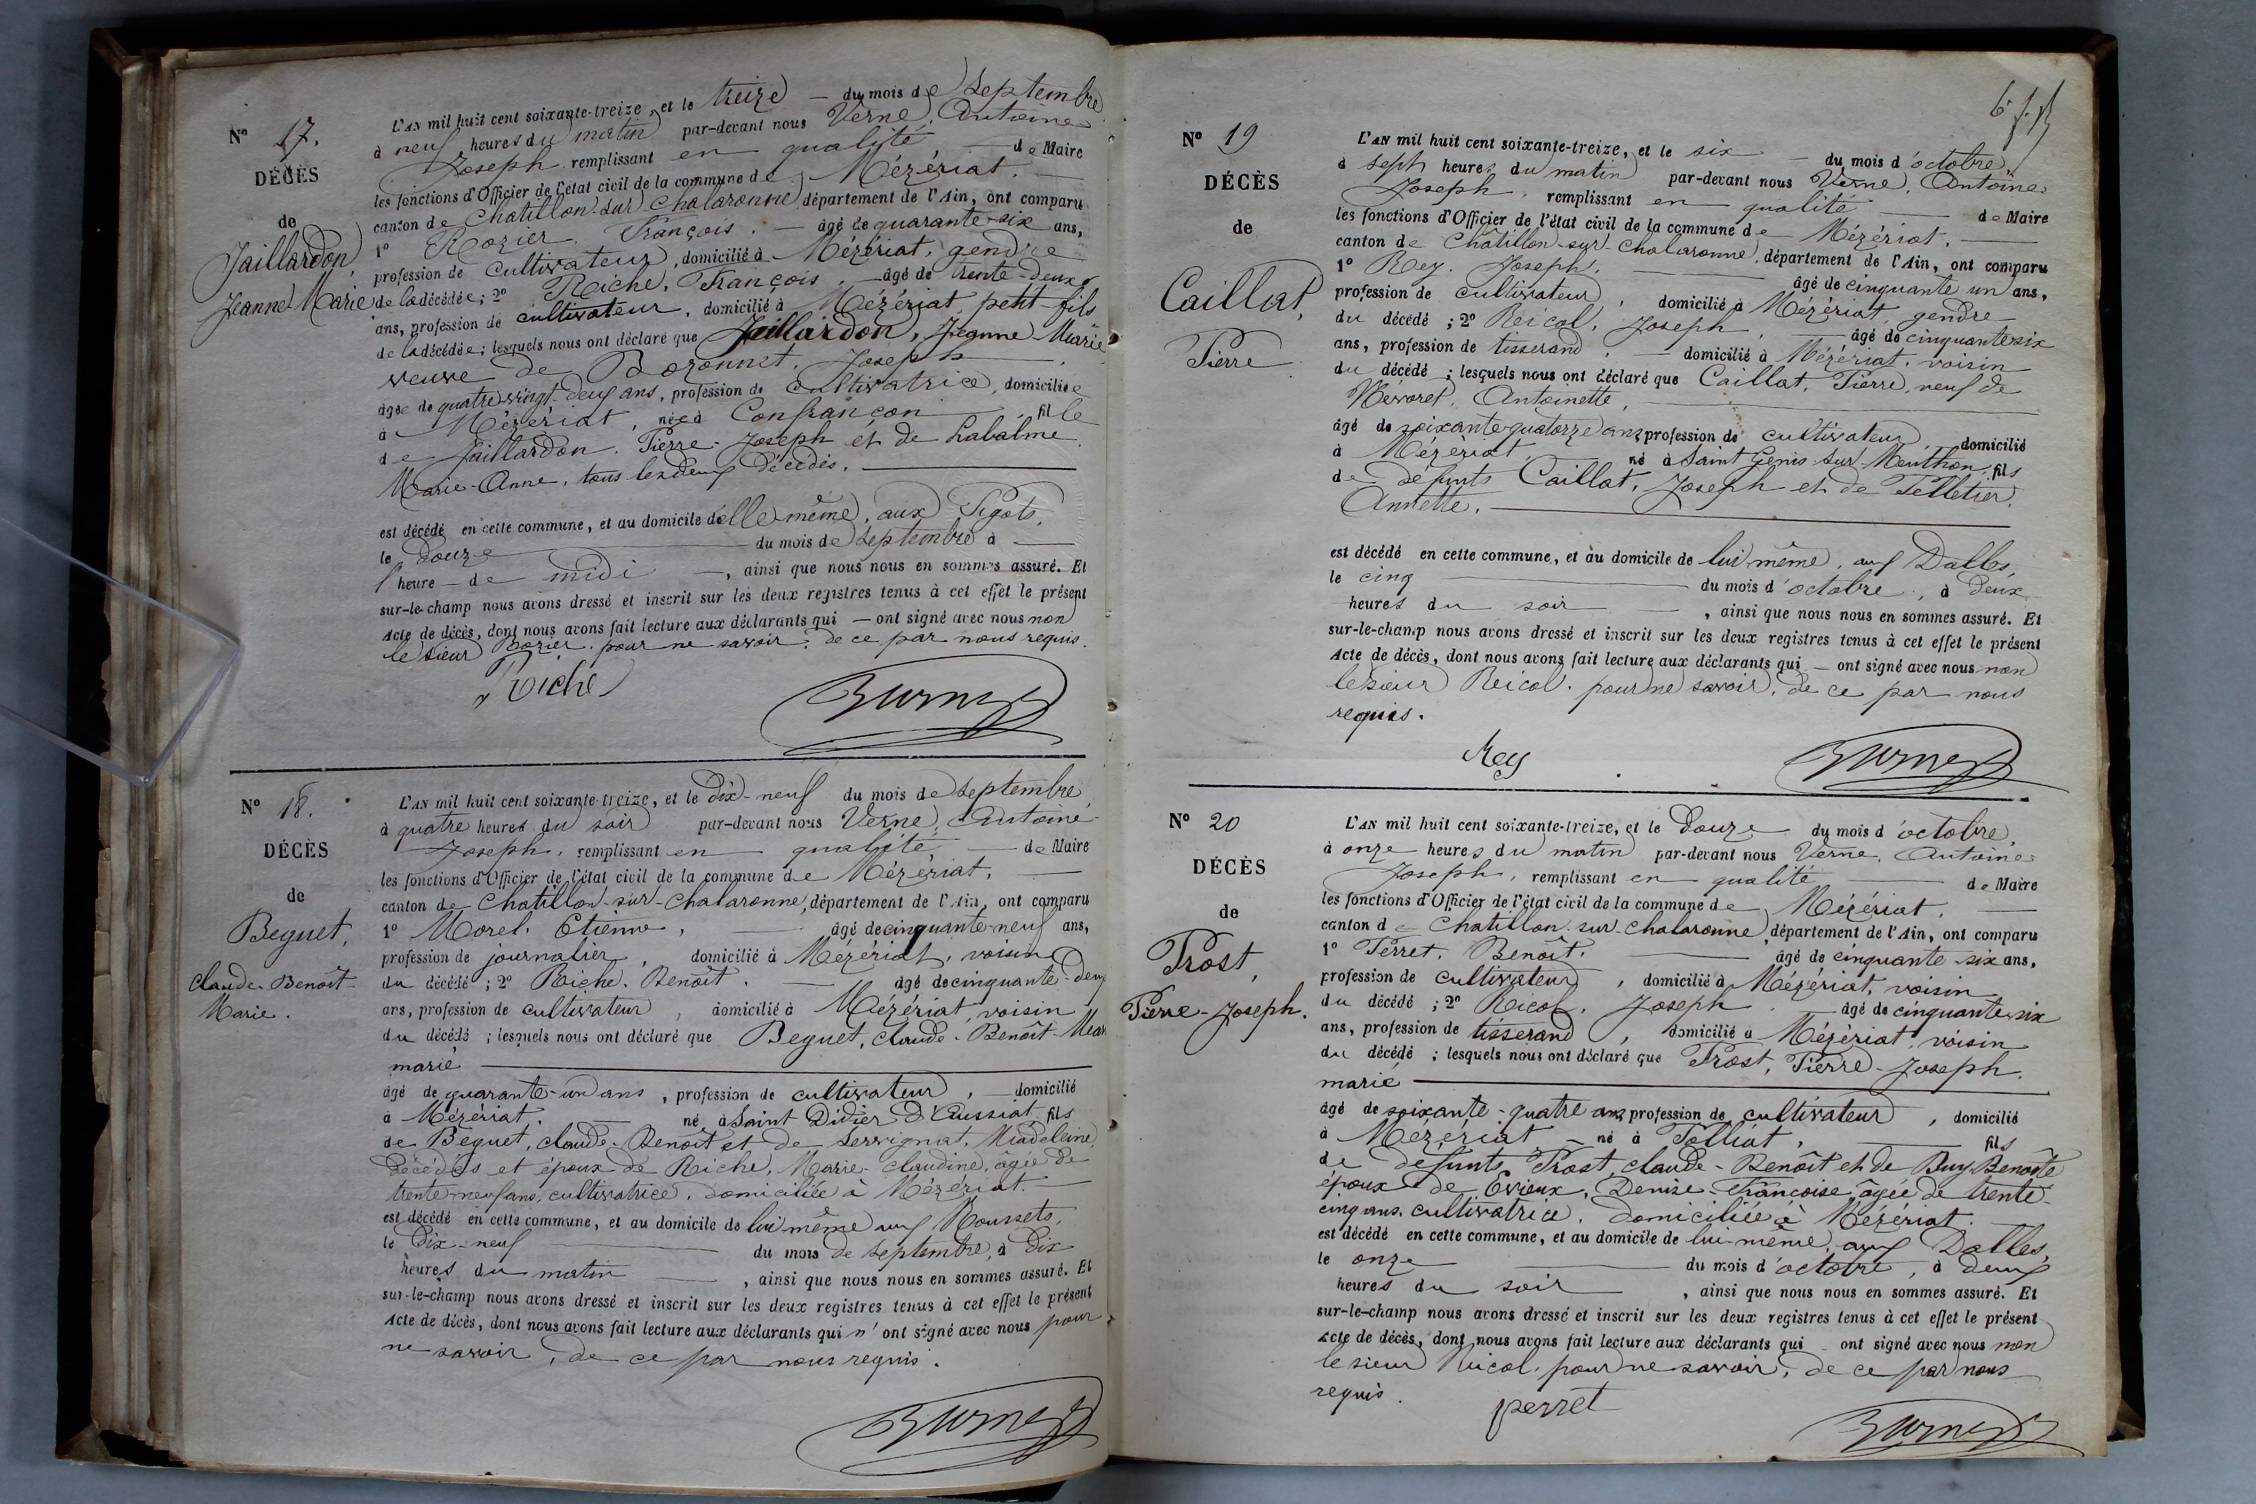 N° 17.
DÉCÈS
de
Jaillardon,
Jeanne-Marie
L'AN mil huit cent soixante-treize, et le treize — du mois de Septembre
à neuf heures du matin par-devant nous Verne, Antoine
Joseph remplissant en qualité — de Maire
les fonctions d'Officier de l'état civil de la commune de Mézériat. —
canton de Chatillon-sur-Chalaronne, département de l'Ain, ont comparu
1° Rozier, François. — âgé de quarante-six ans,
profession de cultivateur, domicilié à Mézériat, gendre
de la décédée; 2° Riche, François, — âgé de trente-deux
ans, profession de cultivateur, domicilié à Mézériat, petit-fils
de la décédée; lesquels nous ont déclaré que Jaillardon, Jeanne Marie
veuve de Bozonnet, Joseph —
âgée de quatre-vingt-deux ans, profession de cultivatrice, domiciliée
à Mézériat, née à Confrançon, fille
de Jaillardon, Pierre-Joseph et de Labalme
Marie-Anne, tous les deux décédés. —
est décédé en cette commune, et au domicile d'elle même, aux Pigots,
le douze — du mois de Septembre à —
l'heure — de midi —, ainsi que nous nous en sommes assuré. Et
sur-le-champ nous avons dressé et inscrit sur les deux registres tenus à cet effet le présent
Acte de décès, dont nous avons fait lecture aux déclarants qui — ont signé avec nous non
le sieur Rozier, pour ne savoir, de ce par nous requis.
Riche
Verne
N° 18.
DÉCÈS
de
Beguet,
Claude-Benoît
Marie.
L'AN mil huit cent soixante-treize, et le dix-neuf du mois de Septembre,
à quatre heures du soir par-devant nous Verne, Antoine
Joseph, remplissant en qualité — de Maire
les fonctions d'Officier de l'état civil de la commune de Mézériat, —
canton de Chatillon-sur-Chalaronne, département de l'Ain, ont comparu
1° Morel, Etienne, — âgé de cinquante-neuf ans,
profession de journalier, domicilié à Mézériat, voisin
du décédé; 2° Riche, Benoît, — âgé de cinquante-deux
ans, profession de cultivateur, domicilié à Mézériat, voisin
du décédé; lesquels nous ont déclaré que Beguet, Claude-Benoît-Marie
marié —
âgé de quarante-un ans, profession de cultivateur, — domicilié
à Mézériat. — né à Saint Didier d'Aussiat fils
de Beguet, Claude-Benoît et de Servignat, Madeleine,
décédés et époux de Riche, Marie-Claudine, âgée de
trente-neuf ans, cultivatrice, domiciliée à Mézériat. —
est décédé en cette commune, et au domicile de lui même aux Moussets,
le dix-neuf — du mois de Septembre, à dix
heures du matin —, ainsi que nous nous en sommes assuré. Et
sur-le-champ nous avons dressé et inscrit sur les deux registres tenus à cet effet le présent
Acte de décès, dont nous avons fait lecture aux déclarants qui n'ont signé avec nous pour
ne savoir, de ce par nous requis.
Verne
N° 19
DÉCÈS
de
Caillat,
Pierre
L'AN mil huit cent soixante-treize, et le six — du mois d'octobre,
à sept heures du matin par-devant nous Verne, Antoine
Joseph, remplissant en qualité — de Maire
les fonctions d'Officier de l'état civil de la commune de Mézériat. —
canton de Châtillon-sur-Chalaronne, département de l'Ain, ont comparu
1° Rey, Joseph, — âgé de cinquante un ans,
profession de cultivateur, domicilié à Mézériat, gendre
du décédé; 2° Reicol, Joseph, — âgé de cinquante six
ans, profession de tisserand, — domicilié à Mézériat, voisin
du décédé; lesquels nous ont déclaré que Caillat, Pierre, veuf de
Mévoret, Antoinette, —
âgé de soixante-quatorze ans profession de cultivateur, domicilié
à Mézériat — né à Saint Genis-sur-Menthon, fils
de défunts Caillat, Joseph et de Pelletier
Annette. —
est décédé en cette commune, et au domicile de lui même, aux Dalles,
le cinq — du mois d'octobre, à deux
heures du soir —, ainsi que nous nous en sommes assuré. Et
sur-le-champ nous avons dressé et inscrit sur les deux registres tenus à cet effet le présent
Acte de décès, dont nous avons fait lecture aux déclarants qui — ont signé avec nous non
le sieur Reicol, pour ne savoir, de ce par nous
requis.
Rey
Verne
N° 20
DÉCÈS
de
Prost,
Pierre-Joseph.
L'AN mil huit cent soixante-treize, et le douze du mois d'octobre,
à onze heures du matin par-devant nous Verne, Antoine
Joseph, remplissant en qualité — de Maire
les fonctions d'Officier de l'état civil de la commune de Mézériat. —
canton de Chatillon-sur-Chalaronne, département de l'Ain, ont comparu
1° Perret, Benoît. — âgé de cinquante-six ans,
profession de cultivateur, domicilié à Mézériat, voisin
du décédé; 2° Reicol, Joseph — âgé de cinquante six
ans, profession de tisserand, domicilié à Mézériat, voisin
du décédé; lesquels nous ont déclaré que Prost, Pierre-Joseph,
marié —
âgé de soixante-quatre ans profession de cultivateur, domicilié
à Mézériat — né à Polliat, — fils
de défunts Prost, Claude-Benoît et de Buy Benoîte
époux de Evieux, Denise-Françoise, âgée de trente-
cinq ans, cultivatrice, domiciliée à Mézériat. —
est décédé en cette commune, et au domicile de lui-même, aux Dalles,
le onze — du mois d'octobre, à deux
heures du soir —, ainsi que nous nous en sommes assuré. Et
sur-le-champ nous avons dressé et inscrit sur les deux registres tenus à cet effet le présent
Acte de décès, dont nous avons fait lecture aux déclarants qui — ont signé avec nous non
le sieur Reicol, pour ne savoir, de ce par nous
requis.
perret
Verne